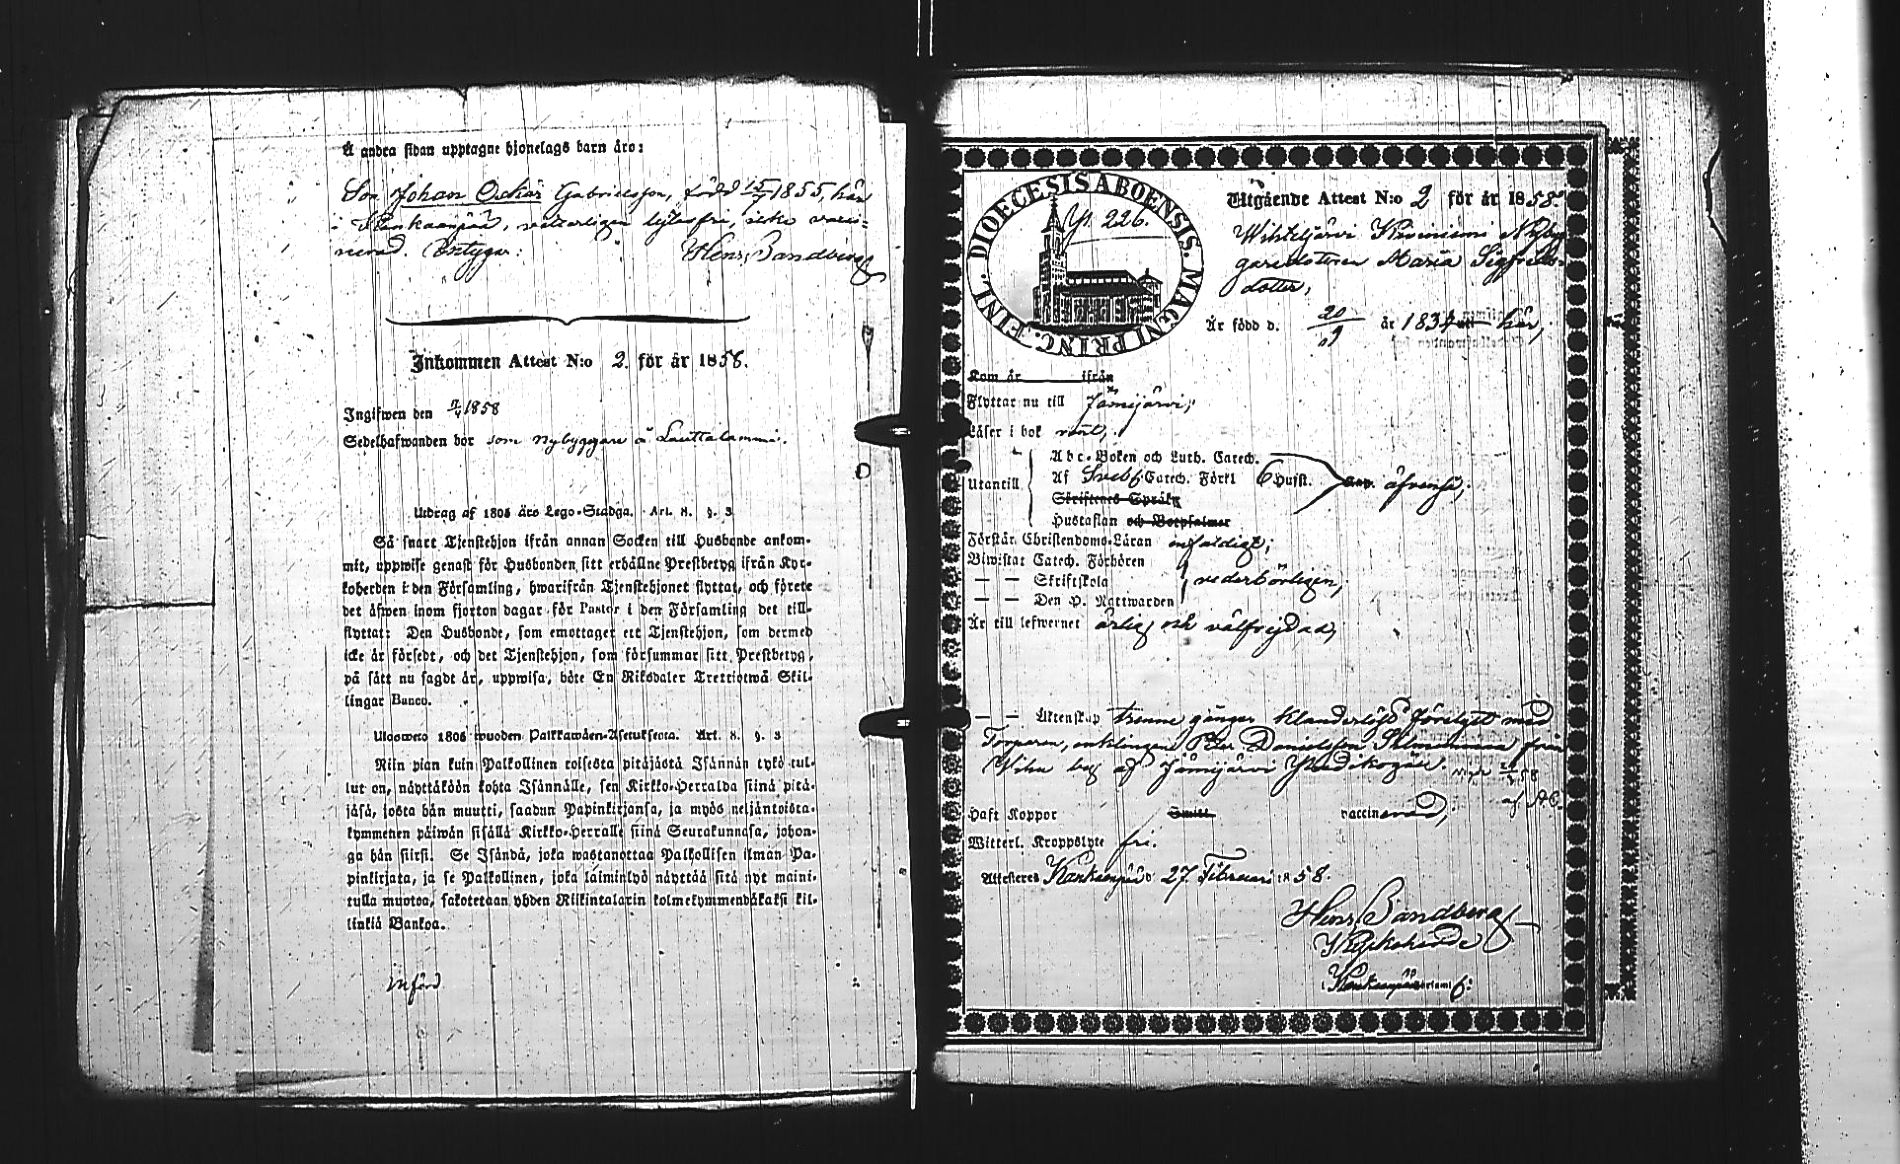 Å andra sidan upptagne hjonelags barn äro:
Son Johan Oskar Gabrielsson, född 15/7 1855, här
i Kankaanpää, veterligen lytesfri, icke vacci-
nerad. Betygar: Hens. Bandberg
Inkommen Attest N:o 2. för år 1858.
Ingifwen den 1858
Sedelhafwanden bor som nybyggare å Lauttalammi.
Utdrag af 1805 års Lego-Stadga. Art. 8. §. 3
Så snart Tjenstehjon ifrån annan Socken till Husbonde ankom-
mit, uppwise genast för Husbonden sitt erhållne Prestbetyg ifrån Kyr-
koherden i den Församling, hwarifrån Tjenstehjonet flyttat, och förete
det äfwen inom fjorton dagar för Pastor i den Församling det till-
flyttat: Den Husbonde, som emottager ett Tjenstehjon, som dermed
icke är försedt, och det Tjenstehjon, som försummar sitt Prestbetyg,
på sätt nu sagdt är, uppwisa, böte En Riksdaler Trettiotwå Skil-
lingar Banco.
Ulosweto 1805 wuoden Palkkawäen-Asetuksesta. Art. 8. §. 3
Niin pian kuin Palkollinen toisesta pitäjästä Isännän tykö tul-
lut on, näyttäköön kohta Isännälle, sen Kirkko-Herralda siinä pitä-
jäsä, josta hän muutti, saadun Papinkirjansa, ja myös neljäntoista-
kymmenen päiwän sisällä Kirkko-Herralle siinä Seurakunnasa, johon-
ga hän siirsi. Se Isändä, joka wastanottaa Palkollisen ilman Pa-
pinkirjata, ja se Palkollinen, joka laiminlyö näyttää sitä nyt maini-
tulla muotoa, sakotetaan yhden Riikintalarin kolmekymmendäkaksi kil-
linkiä Bankoa.
införd
DIOECESIS ABOENSIS. MAGNI PRINC. FINL.
P. 226.
Utgående Attest N:o 2 för år 1858
Wihteljärvi Kiviniemi Nybyg-
garedottren Maria Sigfreds-
dotter,
Är född d. 20/9 år 1834 här,
Kom år ifrån
Flyttar nu till Jämijärvi,
Läser i bok rent,
Abc-Boken och Luth. Catech.
Utantill Af Sveb. Catech. Förkl 6 Hufst. äfvenså,
Skriftenes Språk
Hustaflan och Botpsalmer
Förstår Christendoms-Läran enfaldigt;
Biwistat Catech. Förhören
— — Skriftskola vederbörligen,
— — Den H. Nattwarden
Är till lefwernet ärlig och välfrejdad,
— — Äktenskap trenne gånger klanderlöst förelyst med
Torparen, enklingen Per Danielsson från
Wihu by af Jämijärvi
Haft Koppor Smitt vaccinerad,
Witterl. Kroppslyte fri.
Attesteras Kankaanpää d. 27 Februari 1858.
Hens. Bandberg
Kyrkoherde
i Kankaanpää